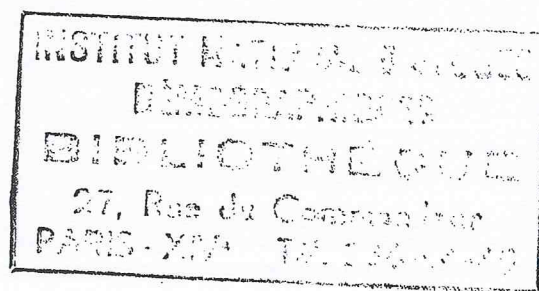 INSTITUT NATIONAL D'ÉTUDES
DÉMOGRAPHIQUES
BIBLIOTHÈQUE
27, Rue du Commandeur
PARIS-XIVe Tél.